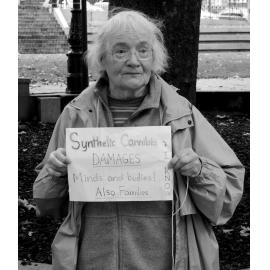 Synthetic Cannibis
DAMAGES
Minds and bodies!
Also Families